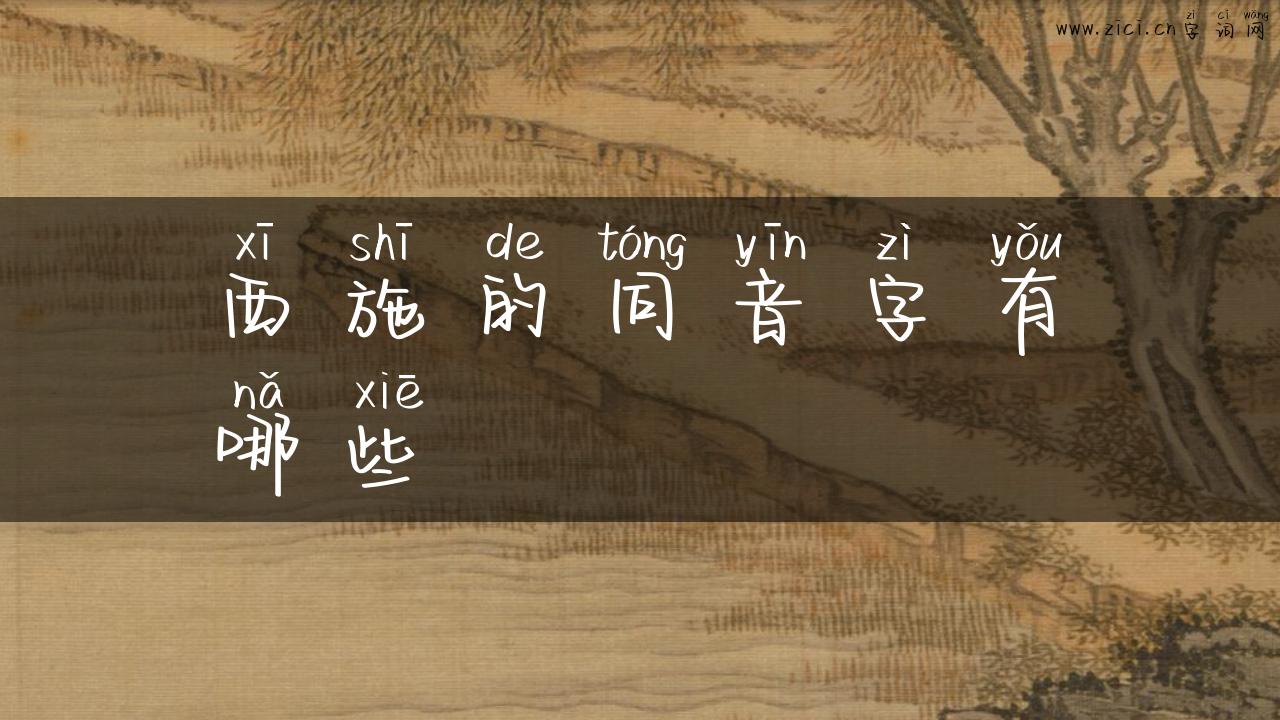 zì cí wǎng
www.zici.cn字词网
xī shī de tóng yīn zì yǒu
西施的同音字有
nǎ xiē
哪些